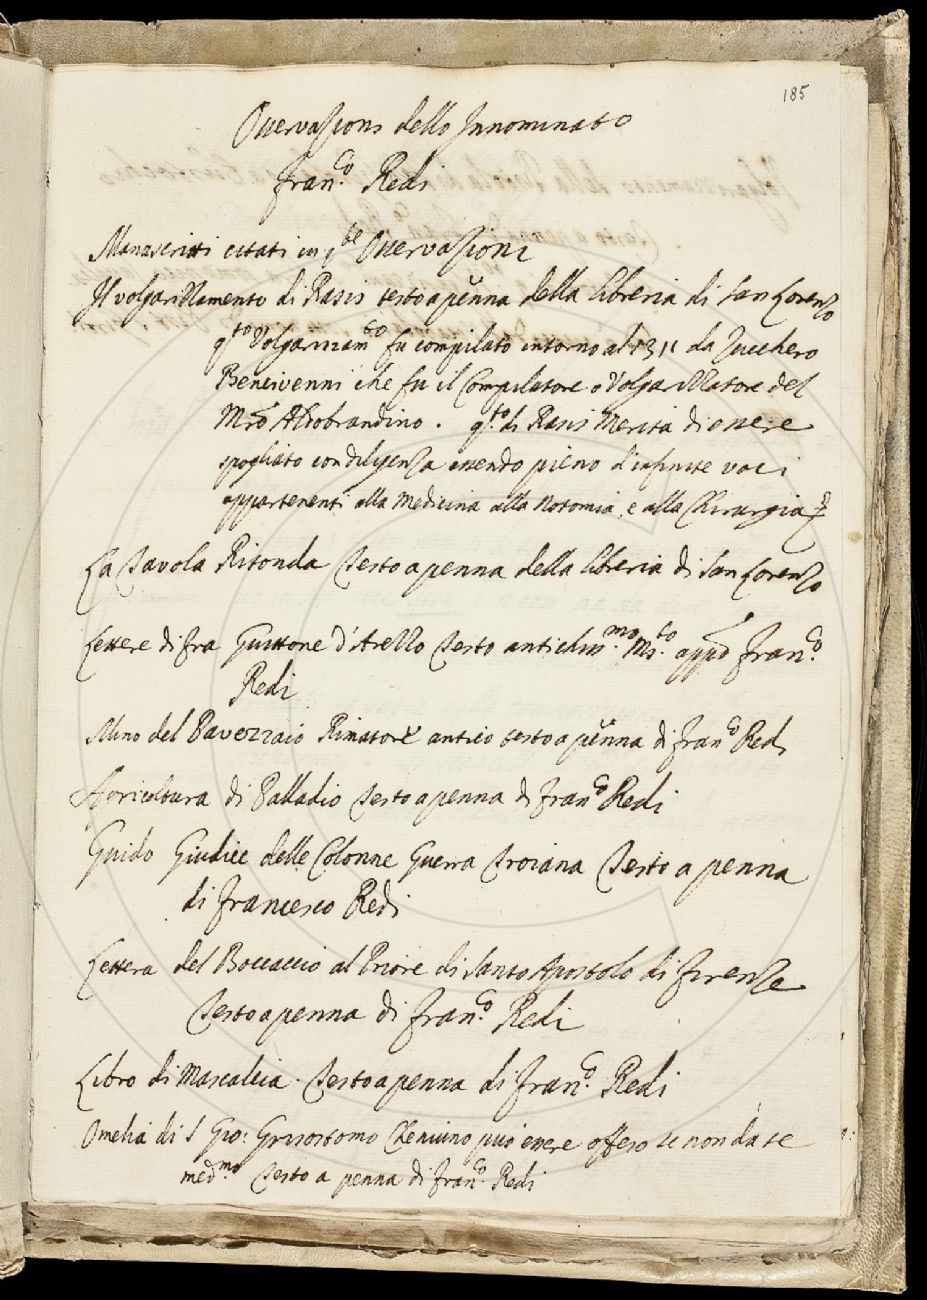 185
Osservazioni dello Innominato
Fran.co Redi
Manuscritti citati in q.te Osservazioni
Il volgarizzamento di Rasis testo a penna della libreria di San Lorenzo
q.to Volgarizzam.to fu compilato intorno al 1311 da Zucchero
Bencivenni che fu il Compilatore o Volgarizzatore del
Mro Aldobrandino. q.to di Rasis Merita di essere
spogliato con diligenza essendo pieno d'infinite voci
appartenenti alla Medicina alla Notomia, e alla Chirurgia
La Tavola Ritonda Testo a penna della libreria di San Lorenzo
Lettere di fra Guittone d'Arezzo Testo antichiss.mo Ms.to appo Fran.co
Redi
Mino del Pavezzaio Rimatore antico testo a penna di Fran.co Redi
Agricoltura di Palladio Testo a penna di Fran.co Redi
Guido Giudice delle Colonne Guerra Troiana Testo a penna
di Francesco Redi
Lettera del Boccaccio al Priore di Santo Apostolo di Firenze
Testo a penna di Fran.co Redi
Libro di Mascalcia. Testo a penna di Fran.co Redi
Omelia di S Gio: Grisostomo Che niuno può essere offeso se non da se
med.mo Testo a penna di Fran.co Redi